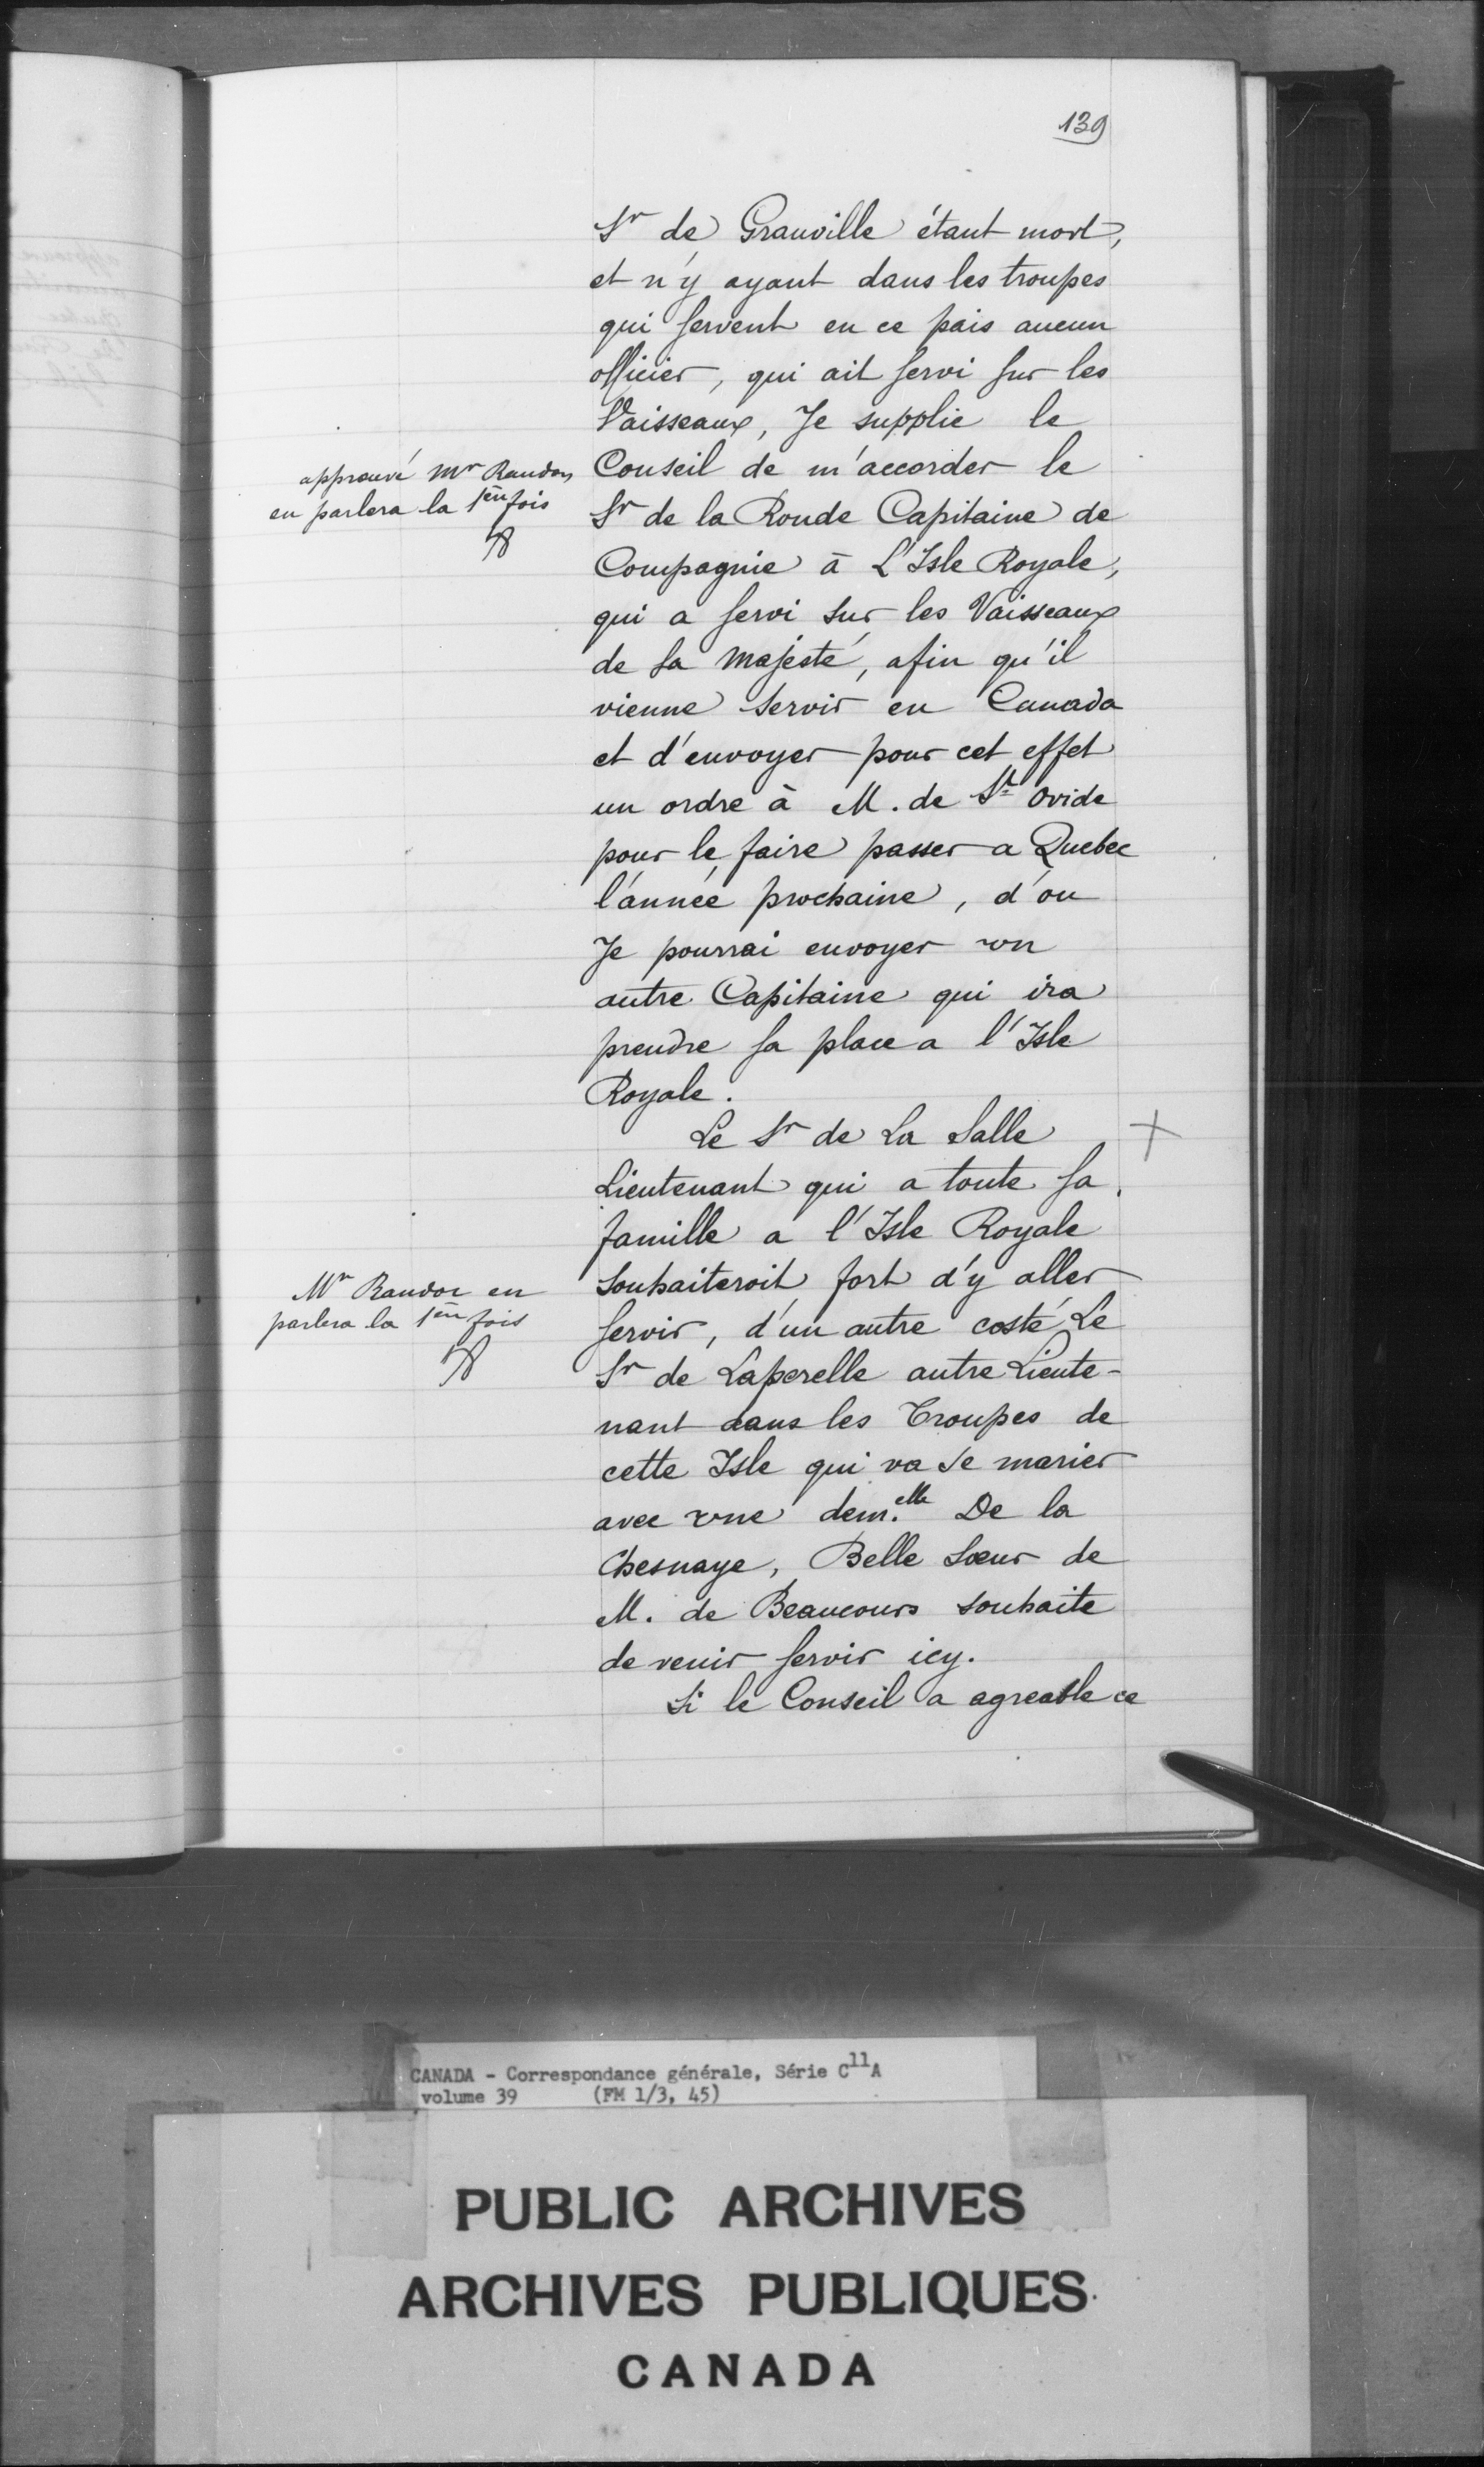 139
Sr de Granville étant mort,
et n'y ayant dans les troupes
qui servent en ce païs aucun
officier, qui ait servi sur les
Vaisseaux, Je supplie le
Conseil de m'accorder le
Sr de la Ronde Capitaine de
Compagnie à L'Isle Royale,
qui a servi sur les Vaisseaux
de sa Majesté, afin qu'il
vienne servir en Canada
et d'envoyer pour cet effet
un ordre à M. de St Ovide
pour le faire passer a Quebec
l'année prochaine, d'ou
Je pourrai envoyer un
autre Capitaine qui ira
prendre sa place a l'Isle
Royale.
approuvé Mr Raudon
en parlera la 1ere fois
Le Sr de La Salle
Lieutenant qui a toute sa
famille a l'Isle Royale
souhaiteroit fort d'y aller
servir, d'un autre costé Le
Sr de Laperelle autre Lieute-
nant dans les Troupes de
cette Isle qui va se marier
avec une dem.elle De la
Chesnaye, Belle soeur de
M. de Beaucours souhaite
de venir servir icy.
Mr Raudot en
parlera la 1ere fois
Si le Conseil a agreable ce
CANADA - Correspondance générale, Série C11A
volume 39 (FM 1/3, 45)
PUBLIC ARCHIVES
ARCHIVES PUBLIQUES
CANADA